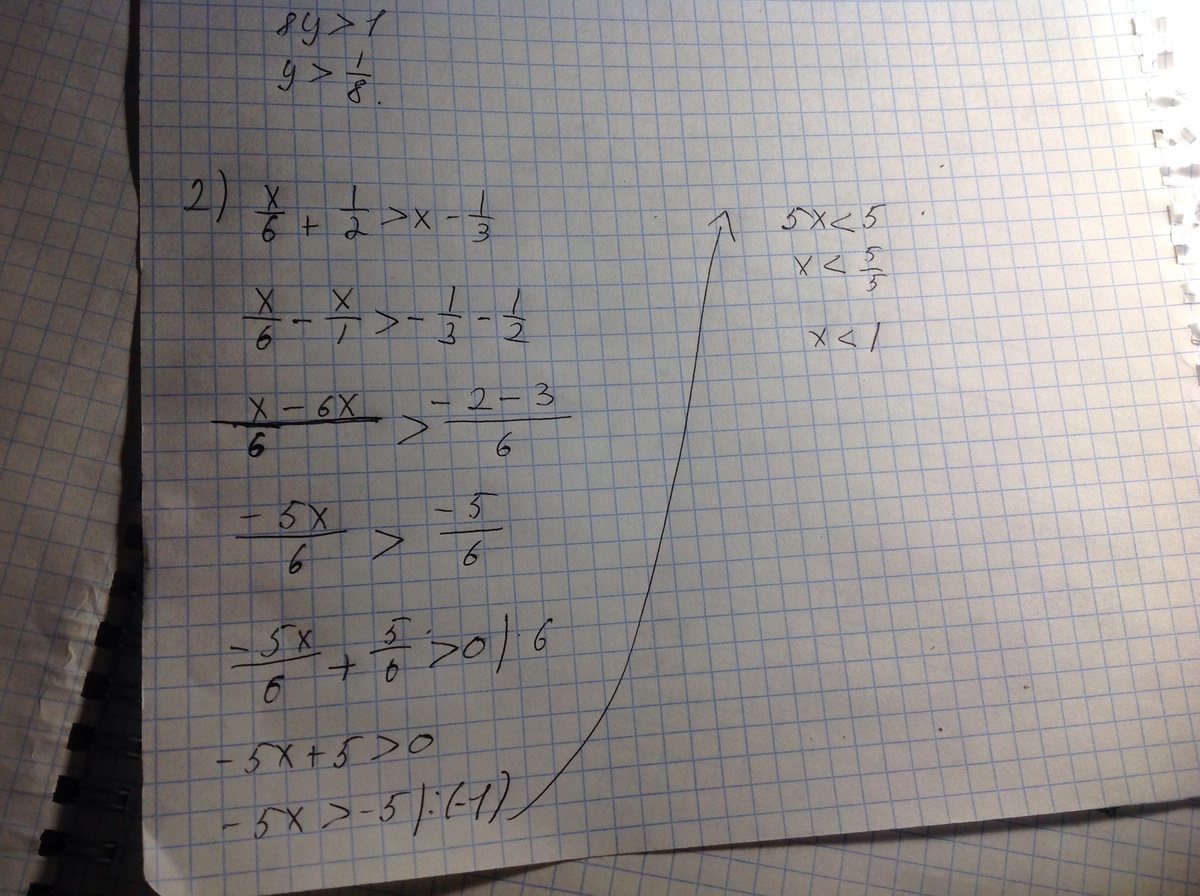 8y > 1
y > 1/8.
2) x/6 + 1/2 > x - 1/3
x/6 - x/1 > - 1/3 - 1/2
x - 6x/6 > - 2 - 3/6
- 5x/6 > - 5/6
- 5x/6 + 5/6 > 0 | · 6
- 5x + 5 > 0
- 5x > - 5 | : (-1)
5x < 5
x < 5/5
x < 1